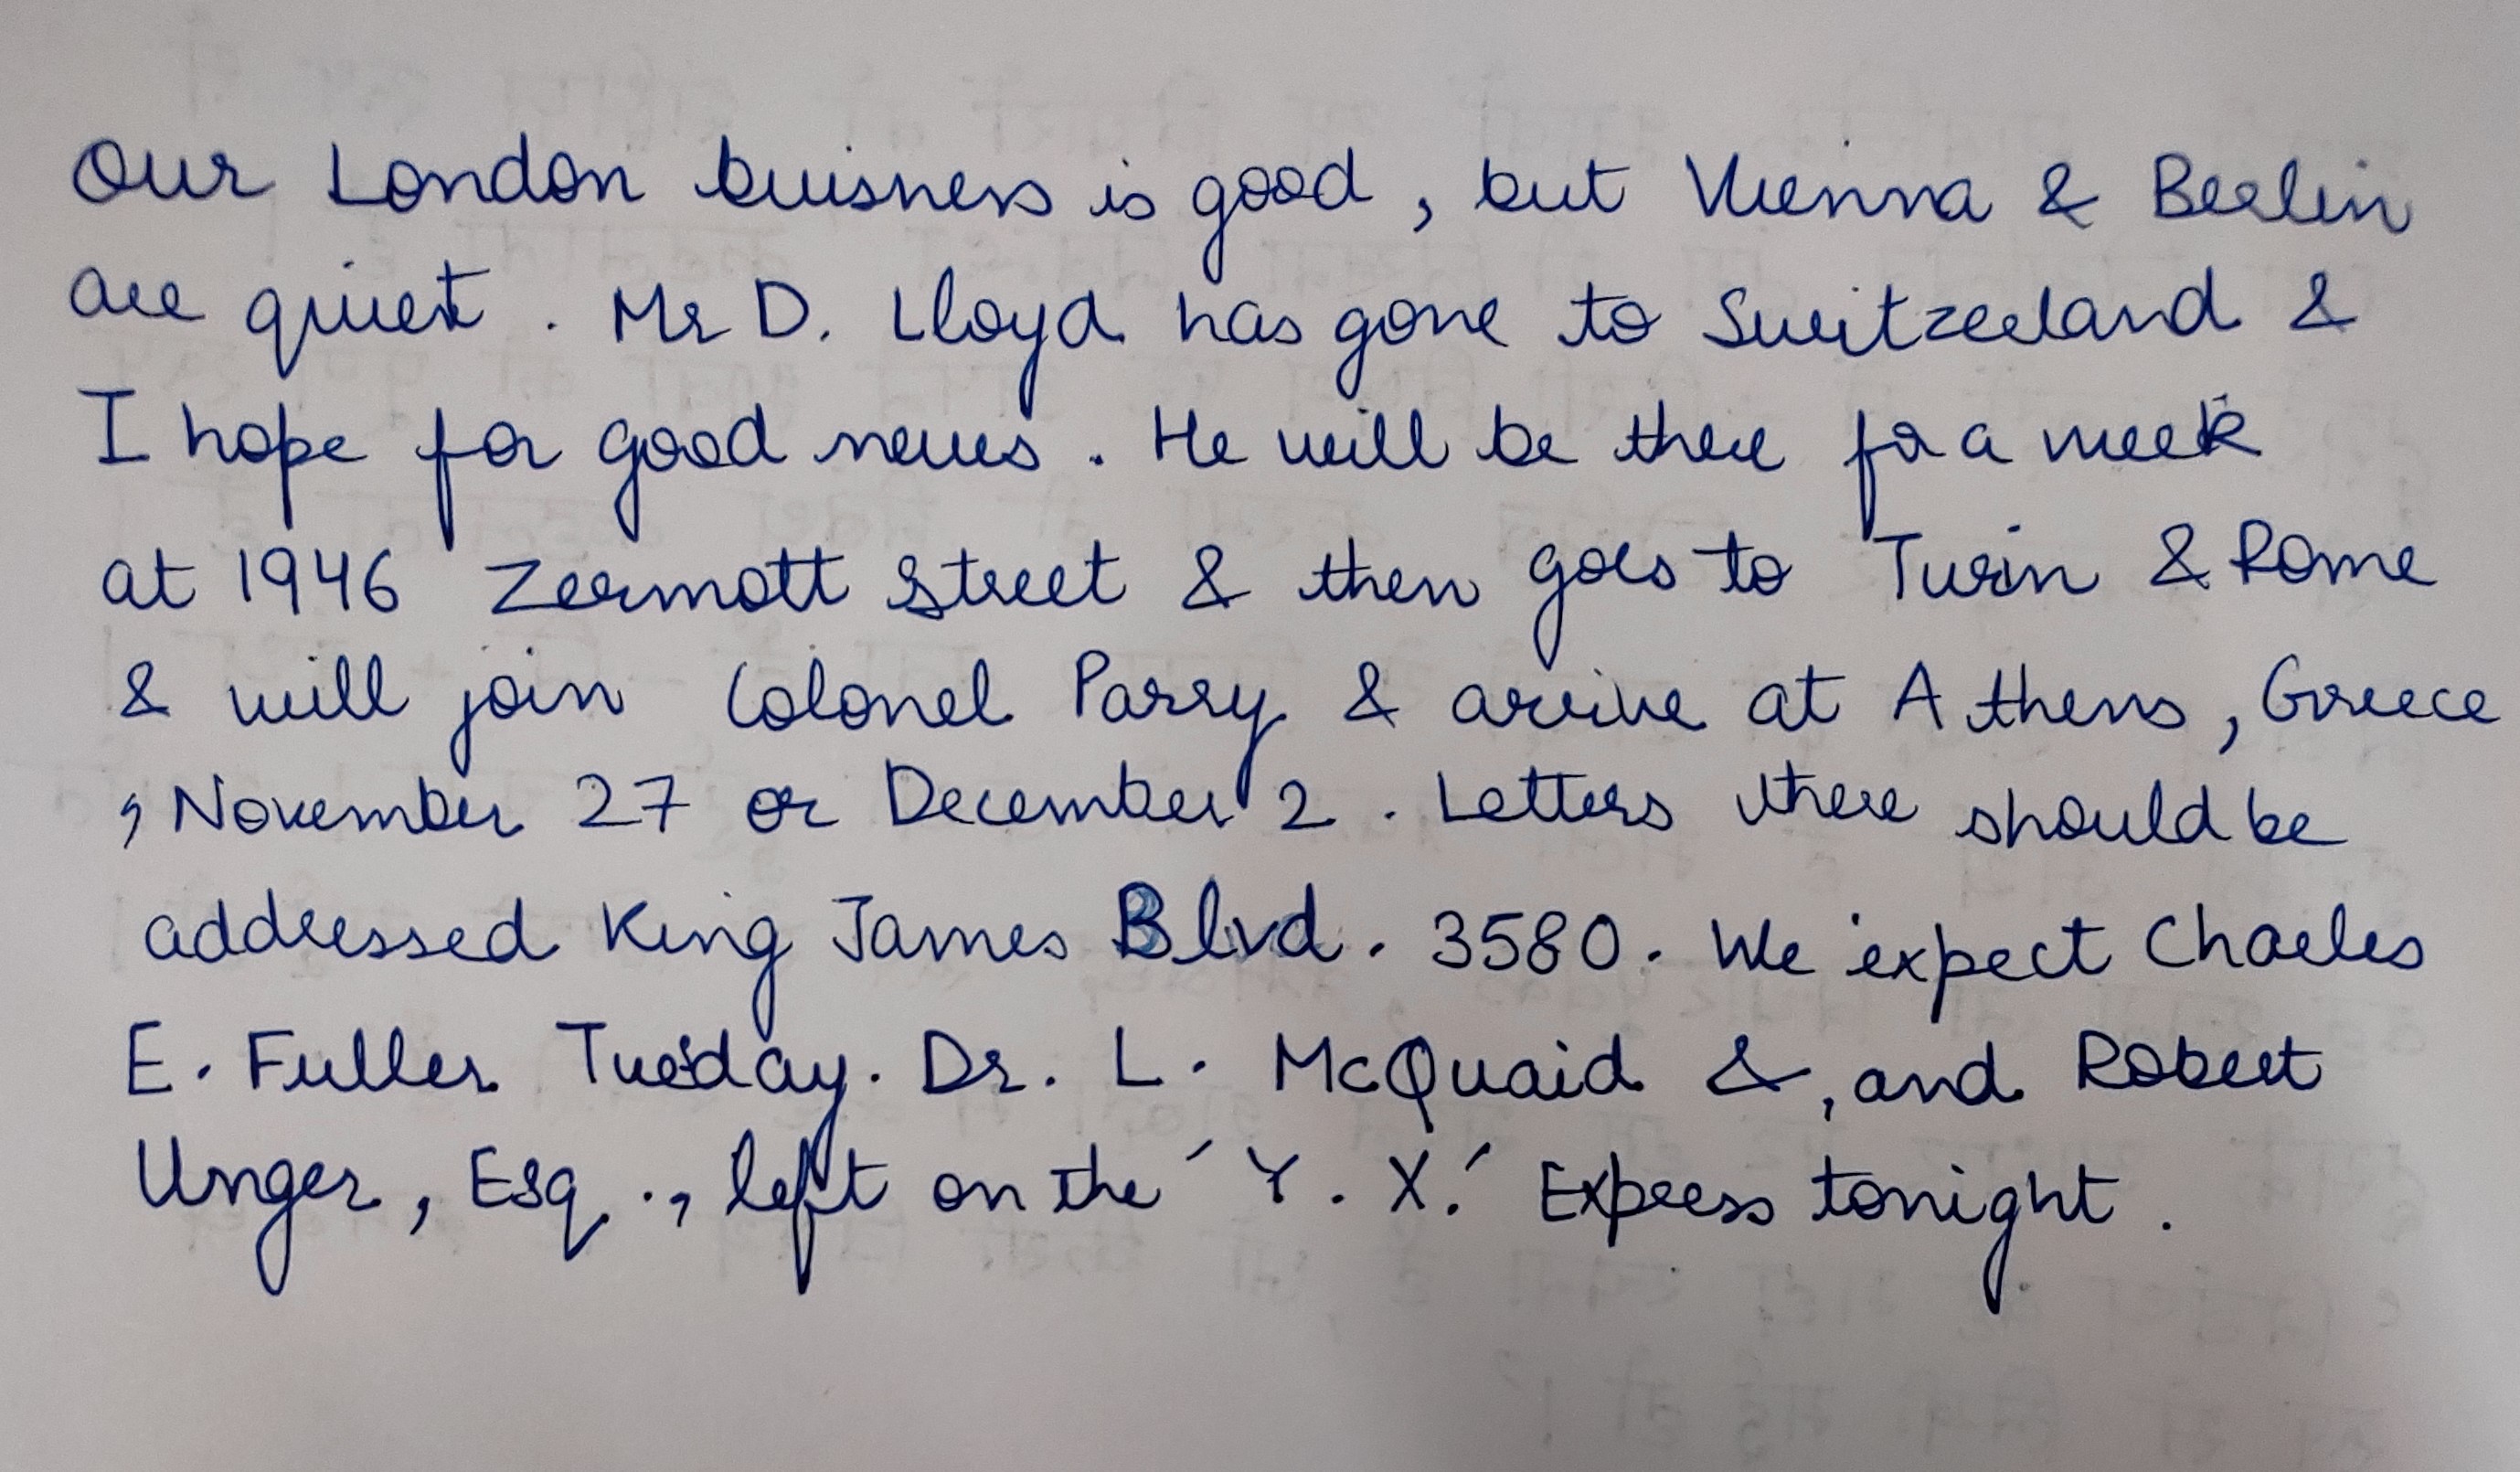 Our London buisness is good, but Vienna & Berlin
are quiet. Mr D. Lloyd has gone to Switzerland &
I hope for good news. He will be there for a week
at 1946 Zermott Street & then goes to Turin & Rome
& will join Colonel Parry & arrive at Athens, Greece
, November 27 or December 2. Letters there should be
addressed King James Blvd. 3580. We expect Charles
E. Fuller Tuesday. Dr. L. McQuaid &, and Robert
Unger, Esq., left on the 'Y. X.' Express tonight.